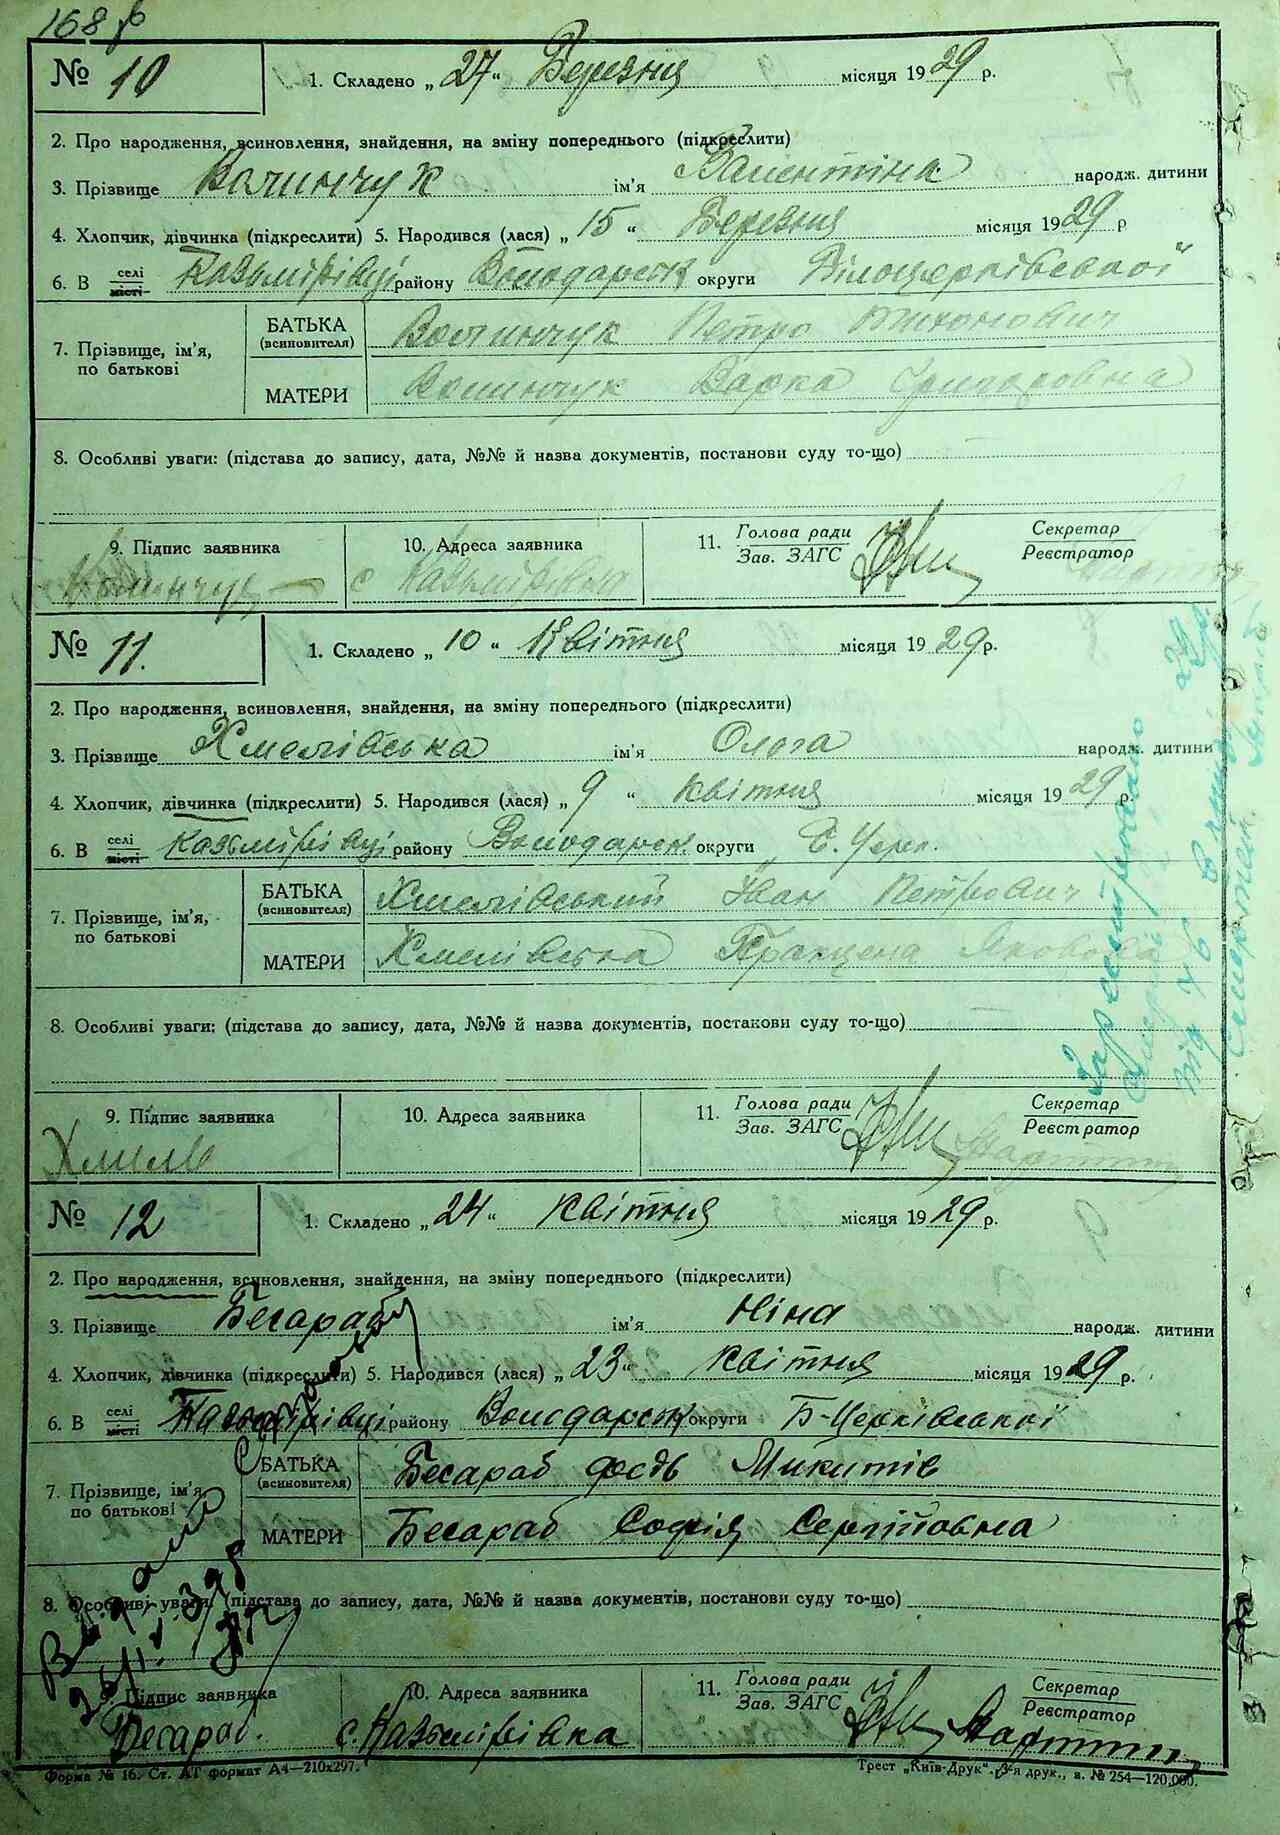 168
№ 10
1. Складено „27“ Березня місяця 1929 р.
2. Про народження, всиновлення, знайдення, на зміну попереднього (підкреслити)
3. Прізвище Волинчук ім'я Валентіна народж. дитини
4. Хлопчик, дівчинка (підкреслити) 5. Народився (лася) „15“ Березня місяця 1929 р
6. В селі місті Казьмірівці району Володарськ округи Білоцерківської
7. Прізвище, ім'я, по батькові
БАТЬКА (всиновителя) Волинчук Петро Тихонович
МАТЕРИ Волинчук Варка Григоровна
8. Особливі уваги: (підстава до запису, дата, №№ й назва документів, постанови суду то-що)
9. Підпис заявника Волинчук
10. Адреса заявника с Казьмірівка
11. Голова ради Зав. ЗАГС
Секретар Реєстратор
№ 11.
1. Складено „10“ Квітня місяця 1929 р.
2. Про народження, всиновлення, знайдення, на зміну попереднього (підкреслити)
3. Прізвище Хмелівська ім'я Ольга народж. дитини
4. Хлопчик, дівчинка (підкреслити) 5. Народився (лася) „9“ квітня місяця 1929 р.
6. В селі місті Казьмірівці району Володарськ. округи Б. Церк.
7. Прізвище, ім'я, по батькові
БАТЬКА (всиновителя) Хмелівський Іван Петрович
МАТЕРИ Хмелівська
8. Особливі уваги: (підстава до запису, дата, №№ й назва документів, постакови суду то-що)
Зареєстровано
під № 6
9. Підпис заявника
10. Адреса заявника
11. Голова ради Зав. ЗАГС
Секретар Реєстратор
№ 12
1. Складено „24“ квітня місяця 1929 р.
2. Про народження, всиновлення, знайдення, на зміну попереднього (підкреслити)
3. Прізвище Бесараб ім'я Ніна народж. дитини
4. Хлопчик, дівчинка (підкреслити) 5. Народився (лася) „23“ квітня місяця 1929 р.
6. В селі місті Казьмірівці району Володарськ округи Б-Церківської
7. Прізвище, ім'я, по батькові
БАТЬКА (всиновителя) Бесараб Федь Микитів
МАТЕРИ Бесараб Софія Сергійовна
8. Особливі уваги: (підстава до запису, дата, №№ й назва документів, постанови суду то-що)
9. Підпис заявника Бесараб.
10. Адреса заявника с. Казьмірівка
11. Голова ради Зав. ЗАГС
Секретар Реєстратор
Форма № 16. Ст. АТ формат А4—210х297.
Трест „Київ-Друк“. 3-я друк., з. № 254—120.000.